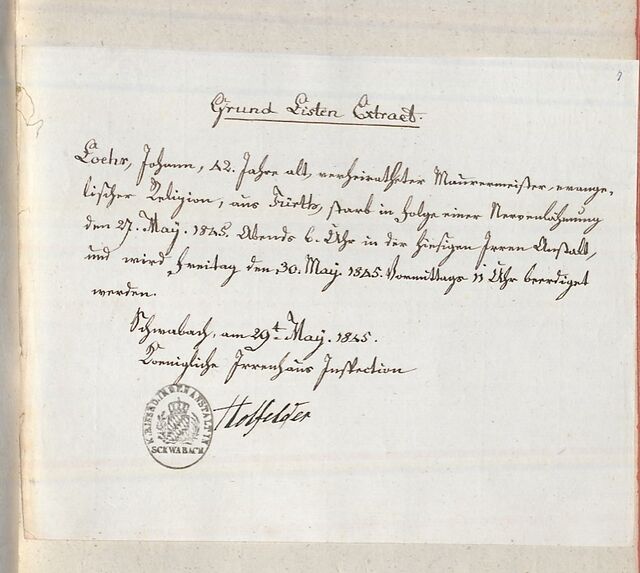 Grund Listen Extract.
Loehr, Johann, 42. Jahre alt, verheiratheter Maurermeister, evange-
lischer Religion, aus Fürth, starb in Folge einer Nervenlähmung
den 27. May. 1845. Abends 6. Uhr in der hiesigen Irren Anstalt,
und wird Freitag den 30. May. 1845. Vormittags 11 Uhr beerdiget
werden.
Schwabach, am 29t. May. 1845.
Koenigliche Irrenhaus Inspection
Holfelder
IRRENANSTALT IN
SCHWABACH